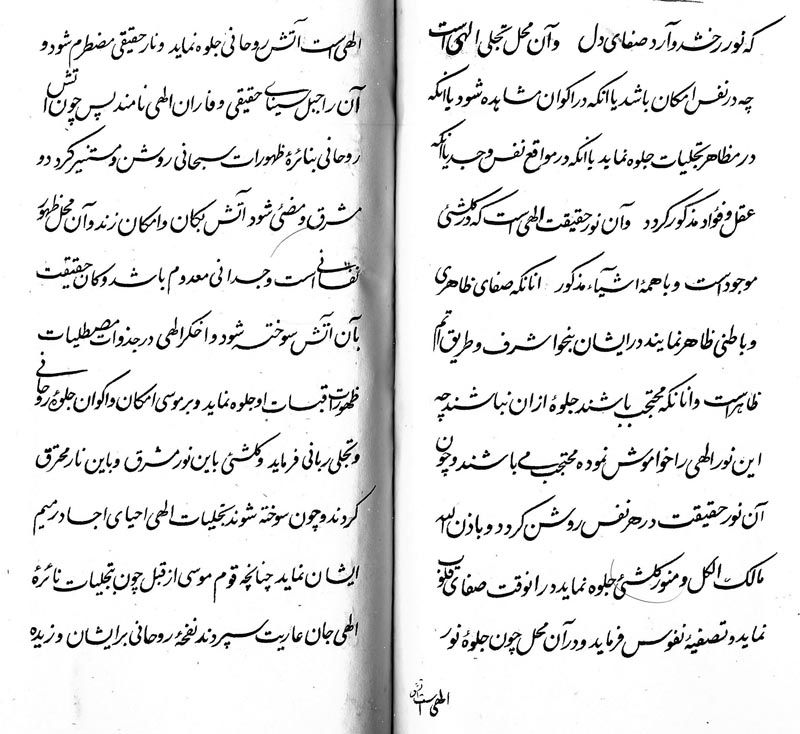 که نور رخشد و آرد صفای دل وآن محل تجلی الهی است
چه در نفس امکان باشد یا انکه در اکوان مشاهده شود یا انکه
در مظاهر تجلیات جلوه نماید یا انکه در مواقع نفس و جد یا انکه
عقل و فؤاد مذکور کردد وآن نور حقیقت الهی است که در کلشئ
موجود است و با همهٔ اشیآء مذکور انانکه صفای ظاهری
و باطنی ظاهر نمایند در ایشان بنحو اشرف و طریق اتم
ظاهر است وانانکه محتجب باشند جلوهٔ از ان نباشند چه
این نور الهی را خواموش نموده محتجب می باشند و چون
آن نور حقیقت در هر نفس روشن کردد و باذن الله
مالک الکل و منور کلشئ جلوه نماید در انوقت صفای قلوب
نماید و تصفیهٔ نفوس فرماید و در آن محل چون جلوهٔ نور
الهی است
الهی است آتش روحانی جلوه نماید و نار حقیقی مضطرم شود و
آن را جبل سینای حقیقی و فاران الهی نامند پس چون اتش
روحانی بنائرهٔ ظهورات سبحانی روشن و مستنیر کردد و
مشرق و مضئ شود آتش بکان و امکان زند وآن محل ظهور
نفسانی است و جدانی معدوم باشد و کان حقیقت
بآن اتش سوخته شود و اخکر الهی در جذوات مصطلیات
ظهورات اقبسات او جلوه نماید و بر موسی امکان و اکوان جلوهٔ روحانی
و تجلی ربانی فرماید و کلشئ باین نور مشرق و باین نار محترق
کردند و چون سوخته شوند تجلیات الهی احیای اجساد رمیم
ایشان نماید چنانچه قوم موسی از قبل چون بتجلیات نائرهٔ
الهی جان عاریت سپردند نفحهٔ روحانی بر ایشان وزیده